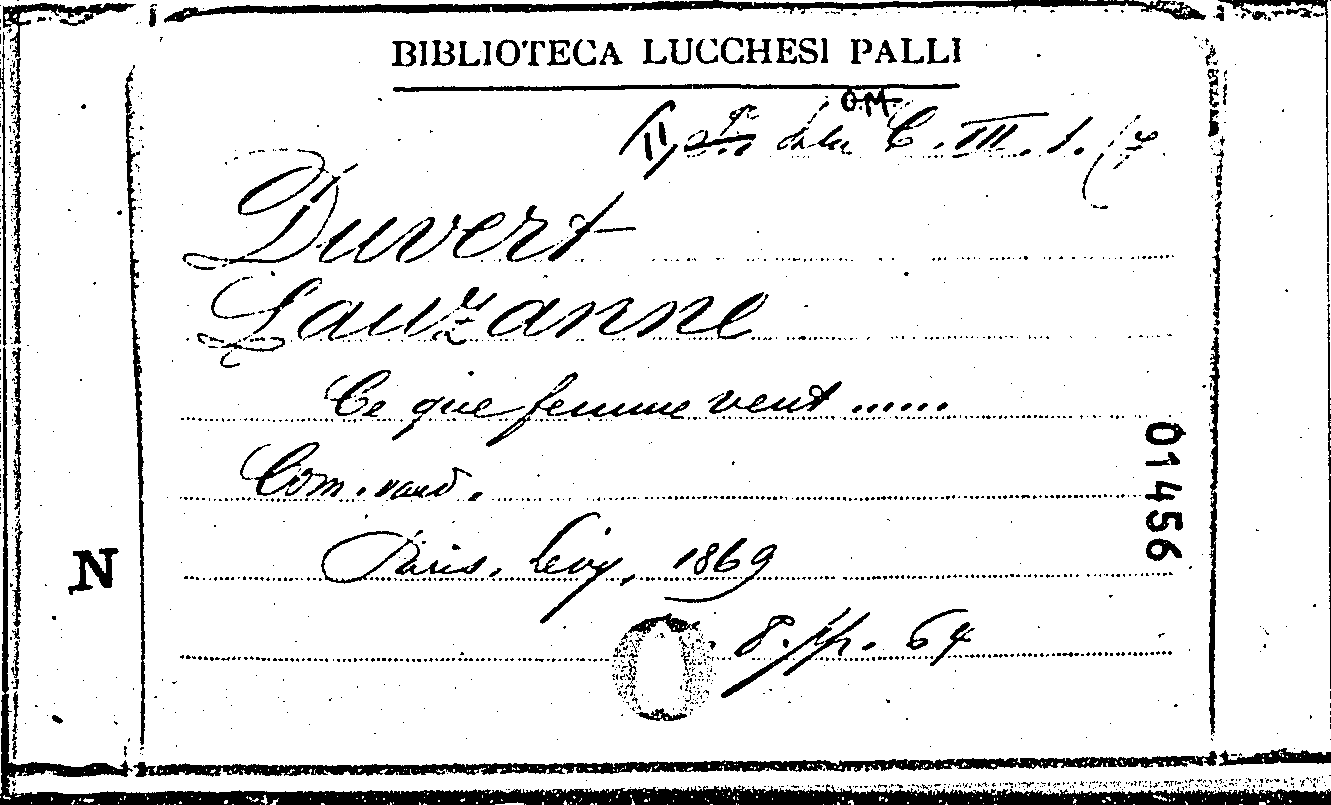 BIBLIOTECA LUCCHESI PALLI
O.M.
Sala C. III. 1. (7
Duvert
Lauzanne
Ce que femme veut ......
Com. vaud.
Paris. Lévy, 1869
8. pp. 64
N
01456